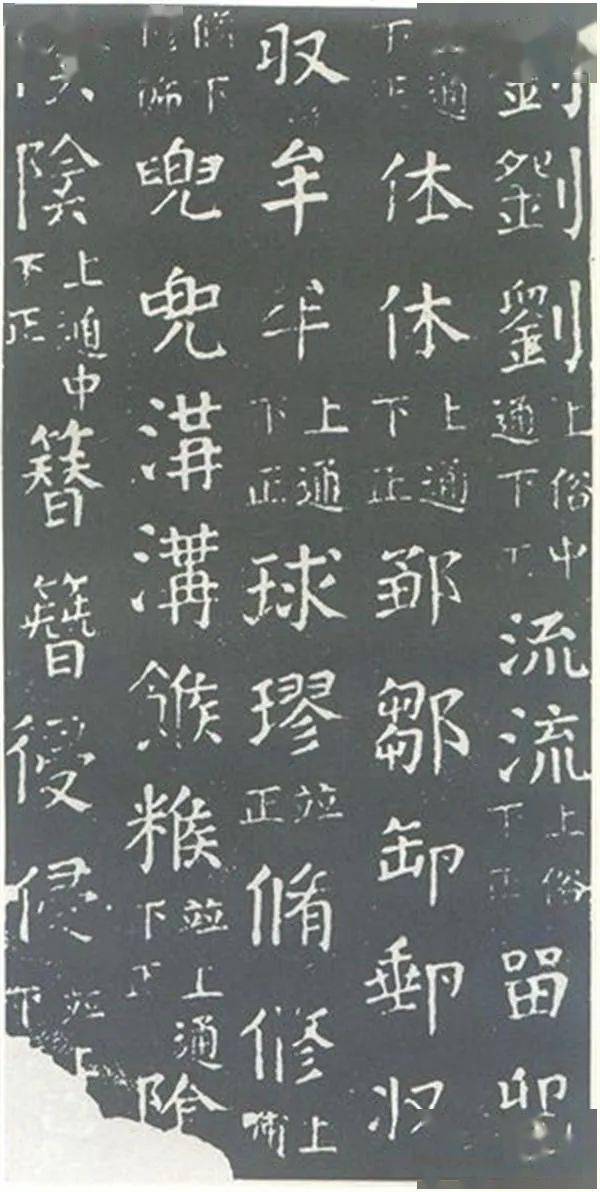 劉劉上俗中通下正流流上俗下正畱卯
上通下正休休上通下正鄒卸郵
収牟牟上通下正球璆並正脩修上
脩下兜兜溝溝餱糇並上通下正陰
陰上通中下正簪簪侵侵並上下